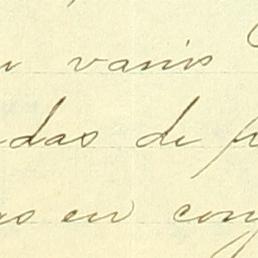 varios
das de
as en con